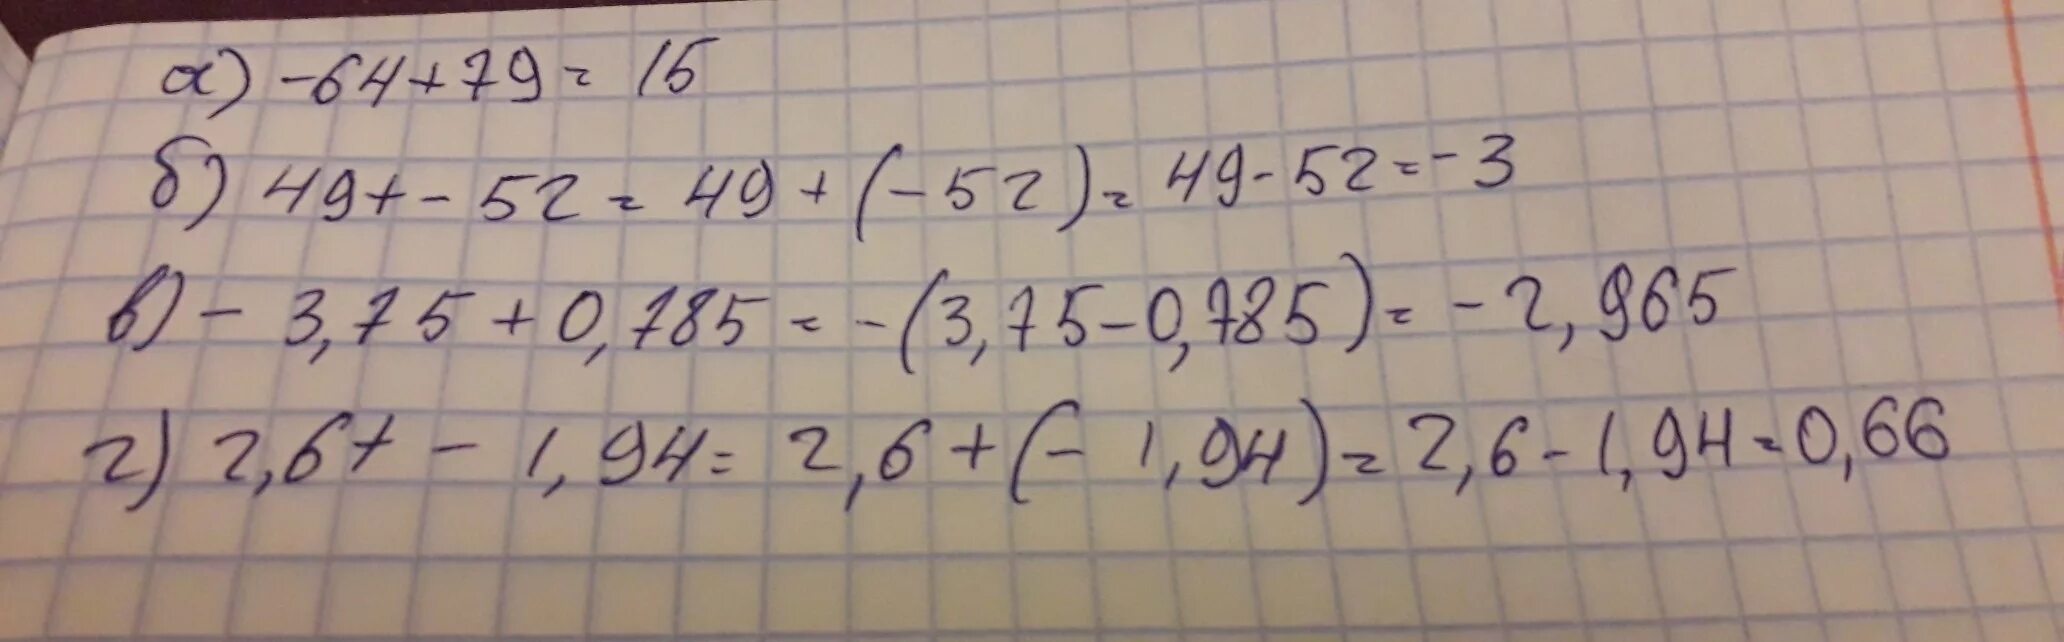 а) -64+79=15
б) 49+-52=49+(-52)=49-52=-3
в) -3,75+0,785=-(3,75-0,785)=-2,965
г) 2,6+-1,94=2,6+(-1,94)=2,6-1,94=0,66